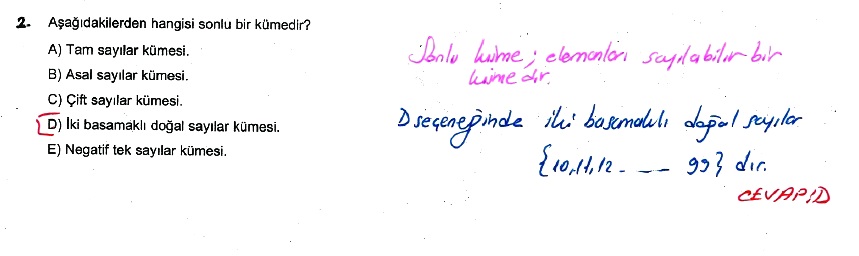 2. Aşağıdakilerden hangisi sonlu bir kümedir?
A) Tam sayılar kümesi.
B) Asal sayılar kümesi.
C) Çift sayılar kümesi.
D) İki basamaklı doğal sayılar kümesi.
E) Negatif tek sayılar kümesi.
Sonlu küme; elemanları sayılabilir bir
kümedir.
D seçeneğinde iki basamaklı doğal sayılar
{10,11,12- -- 99} dır.
CEVAP:D